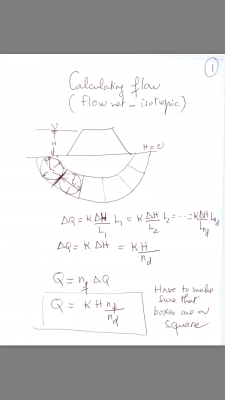 ①
Calculating flow
(flow net - isotropic)
H
H=0
ΔQ = K ΔH/L₁ L₁ = K ΔH/L₂ L₂ = ... = K ΔH/L_nd L_nd
ΔQ = K ΔH = K H/n_d
Q = n_f ΔQ
Q = K H n_f/n_d
Have to make
sure that
boxes are ~
square